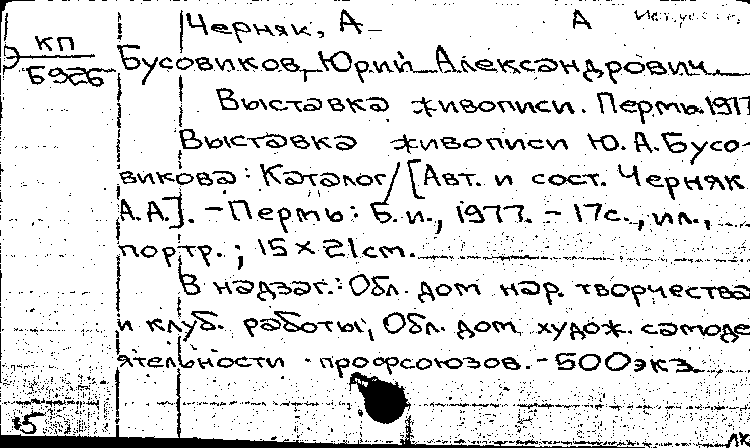 Черняк, А
А
КП
Б926
Бусовиков, Юрий Александрович
Выставка живописи. Пермь. 1977
Выставка живописи Ю.А.Бусо-
викова: Каталог/[Авт. и сост. Черняк
А.А]. - Пермь: Б.и., 1977. - 17с., ил.,
портр.; 15 × 21cm.
В надзаг.: Обл. дом нар. творчества
и клуб. работы; Обл. дом худож. самоде
ятельности профсоюзов. - 500экз.